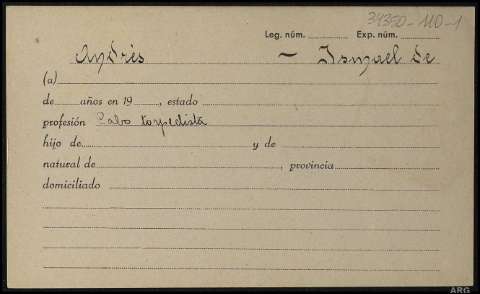 39350-110-1
Leg. núm. Exp. núm.
Andrés — Ismael de
(a)
de años en 19 , estado
profesión Cabo torpedista
hijo de y de
natural de , provincia
domiciliado
ARG